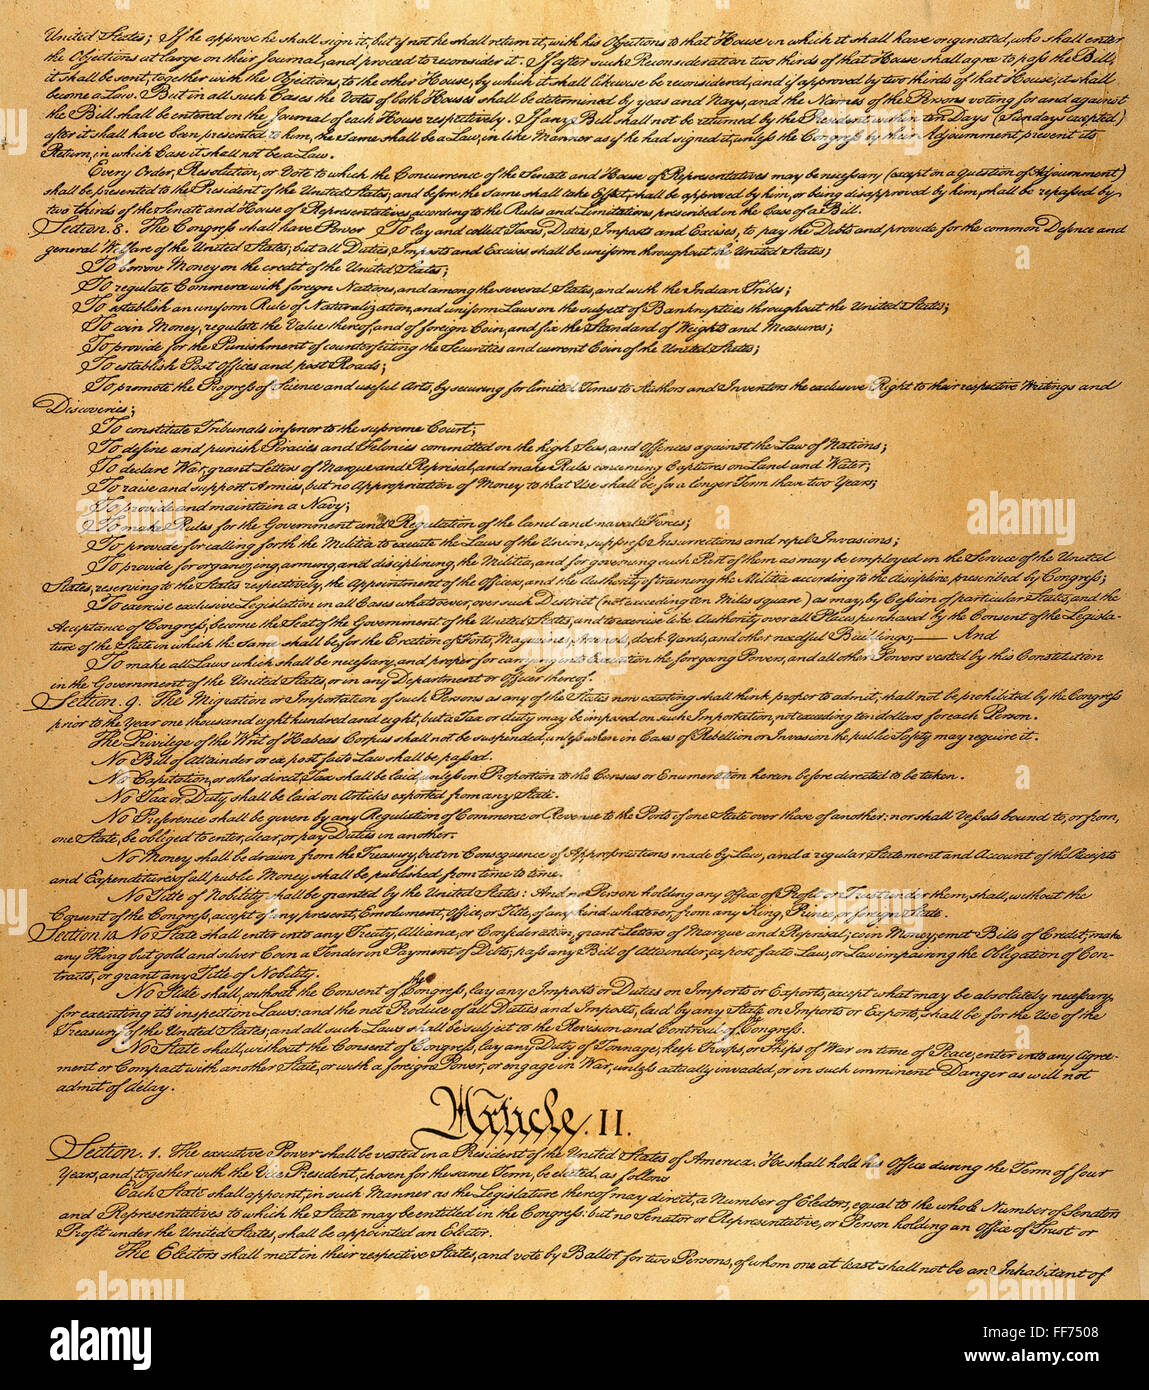 United States; If he approve he shall sign it, but if not he shall return it, with his Objections to that House in which it shall have originated, who shall enter
the Objections at large on their Journal, and proceed to reconsider it. If after such Reconsideration two thirds of that House shall agree to pass the Bill,
it shall be sent, together with the Objections, to the other House, by which it shall likewise be reconsidered, and if approved by two thirds of that House, it shall
become a Law. But in all such Cases the Votes of both Houses shall be determined by yeas and Nays, and the Names of the Persons voting for and against
the Bill shall be entered on the Journal of each House respectively. If any Bill shall not be returned by the President within ten Days (Sundays excepted)
after it shall have been presented to him, the Same shall be a Law, in like Manner as if he had signed it, unless the Congress by their Adjournment prevent its
Return, in which Case it shall not be a Law.
Every Order, Resolution, or Vote to which the Concurrence of the Senate and House of Representatives may be necessary (except on a question of Adjournment)
shall be presented to the President of the United States; and before the Same shall take Effect, shall be approved by him, or being disapproved by him, shall be repassed by
two thirds of the Senate and House of Representatives, according to the Rules and Limitations prescribed in the Case of a Bill.
Section. 8. The Congress shall have Power To lay and collect Taxes, Duties, Imposts and Excises, to pay the Debts and provide for the common Defence and
general Welfare of the United States; but all Duties, Imposts and Excises shall be uniform throughout the United States;
To borrow Money on the credit of the United States;
To regulate Commerce with foreign Nations, and among the several States, and with the Indian Tribes;
To establish an uniform Rule of Naturalization, and uniform Laws on the subject of Bankruptcies throughout the United States;
To coin Money, regulate the Value thereof, and of foreign Coin, and fix the Standard of Weights and Measures;
To provide for the Punishment of counterfeiting the Securities and current Coin of the United States;
To establish Post Offices and post Roads;
To promote the Progress of Science and useful Arts, by securing for limited Times to Authors and Inventors the exclusive Right to their respective Writings and
Discoveries;
To constitute Tribunals inferior to the supreme Court;
To define and punish Piracies and Felonies committed on the high Seas, and Offences against the Law of Nations;
To declare War, grant Letters of Marque and Reprisal, and make Rules concerning Captures on Land and Water;
To raise and support Armies, but no Appropriation of Money to that Use shall be for a longer Term than two Years;
To provide and maintain a Navy;
To make Rules for the Government and Regulation of the land and naval Forces;
To provide for calling forth the Militia to execute the Laws of the Union, suppress Insurrections and repel Invasions;
To provide for organizing, arming, and disciplining, the Militia, and for governing such Part of them as may be employed in the Service of the United
States, reserving to the States respectively, the Appointment of the Officers, and the Authority of training the Militia according to the discipline prescribed by Congress;
To exercise exclusive Legislation in all Cases whatsoever, over such District (not exceeding ten Miles square) as may, by Cession of particular States, and the
Acceptance of Congress, become the Seat of the Government of the United States, and to exercise like Authority over all Places purchased by the Consent of the Legisla-
ture of the State in which the Same shall be, for the Erection of Forts, Magazines, Arsenals, dock-Yards, and other needful Buildings;—And
To make all Laws which shall be necessary and proper for carrying into Execution the foregoing Powers, and all other Powers vested by this Constitution
in the Government of the United States, or in any Department or Officer thereof.
Section. 9. The Migration or Importation of such Persons as any of the States now existing shall think proper to admit, shall not be prohibited by the Congress
prior to the Year one thousand eight hundred and eight, but a Tax or duty may be imposed on such Importation, not exceeding ten dollars for each Person.
The Privilege of the Writ of Habeas Corpus shall not be suspended, unless when in Cases of Rebellion or Invasion the public Safety may require it.
No Bill of Attainder or ex post facto Law shall be passed.
No Capitation, or other direct, Tax shall be laid, unless in Proportion to the Census or Enumeration herein before directed to be taken.
No Tax or Duty shall be laid on Articles exported from any State.
No Preference shall be given by any Regulation of Commerce or Revenue to the Ports of one State over those of another: nor shall Vessels bound to, or from,
one State, be obliged to enter, clear, or pay Duties in another.
No Money shall be drawn from the Treasury, but in Consequence of Appropriations made by Law, and a regular Statement and Account of the Receipts
and Expenditures of all public Money shall be published from time to time.
No Title of Nobility shall be granted by the United States: And no Person holding any Office of Profit or Trust under them, shall, without the
Consent of the Congress, accept of any present, Emolument, Office, or Title, of any kind whatever, from any King, Prince, or foreign State.
Section. 10. No State shall enter into any Treaty, Alliance, or Confederation; grant Letters of Marque and Reprisal; coin Money; emit Bills of Credit; make
any Thing but gold and silver Coin a Tender in Payment of Debts; pass any Bill of Attainder, ex post facto Law, or Law impairing the Obligation of Con-
tracts, or grant any Title of Nobility.
No State shall, without the Consent of the Congress, lay any Imposts or Duties on Imports or Exports, except what may be absolutely necessary
for executing its inspection Laws: and the net Produce of all Duties and Imposts, laid by any State on Imports or Exports, shall be for the Use of the
Treasury of the United States; and all such Laws shall be subject to the Revision and Controul of the Congress.
No State shall, without the Consent of Congress, lay any Duty of Tonnage, keep Troops, or Ships of War in time of Peace, enter into any Agree-
ment or Compact with another State, or with a foreign Power, or engage in War, unless actually invaded, or in such imminent Danger as will not
admit of delay.
Article. II.
Section. 1. The executive Power shall be vested in a President of the United States of America. He shall hold his Office during the Term of four
Years, and, together with the Vice President, chosen for the same Term, be elected, as follows
Each State shall appoint, in such Manner as the Legislature thereof may direct, a Number of Electors, equal to the whole Number of Senators
and Representatives to which the State may be entitled in the Congress: but no Senator or Representative, or Person holding an Office of Trust or
Profit under the United States, shall be appointed an Elector.
The Electors shall meet in their respective States, and vote by Ballot for two Persons, of whom one at least shall not be an Inhabitant of
alamy
Image ID: FF7508
www.alamy.com